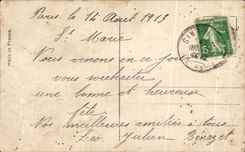 Paris, le 14 Aout 1915
Ste Marie
Nous venons en ce jour
vous souhaiter
une bonne et heureuse
fête
Nos meilleures amitiés à tous
Léo, Julien
MADE IN FRANCE
5